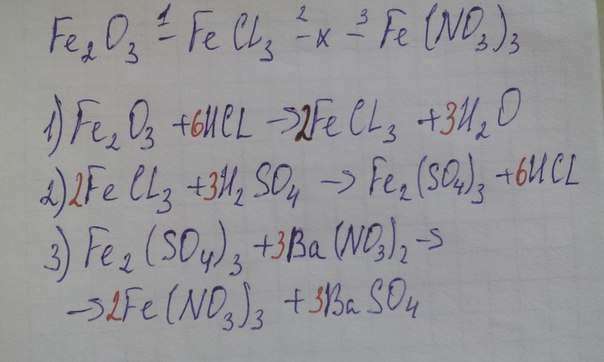 Fe₂O₃ -¹ FeCl₃ -² x -³ Fe(NO₃)₃
1) Fe₂O₃ + 6HCL → 2FeCL₃ + 3H₂O
2) 2FeCL₃ + 3H₂SO₄ → Fe₂(SO₄)₃ + 6HCL
3) Fe₂(SO₄)₃ + 3Ba(NO₃)₂ →
→ 2Fe(NO₃)₃ + 3BaSO₄